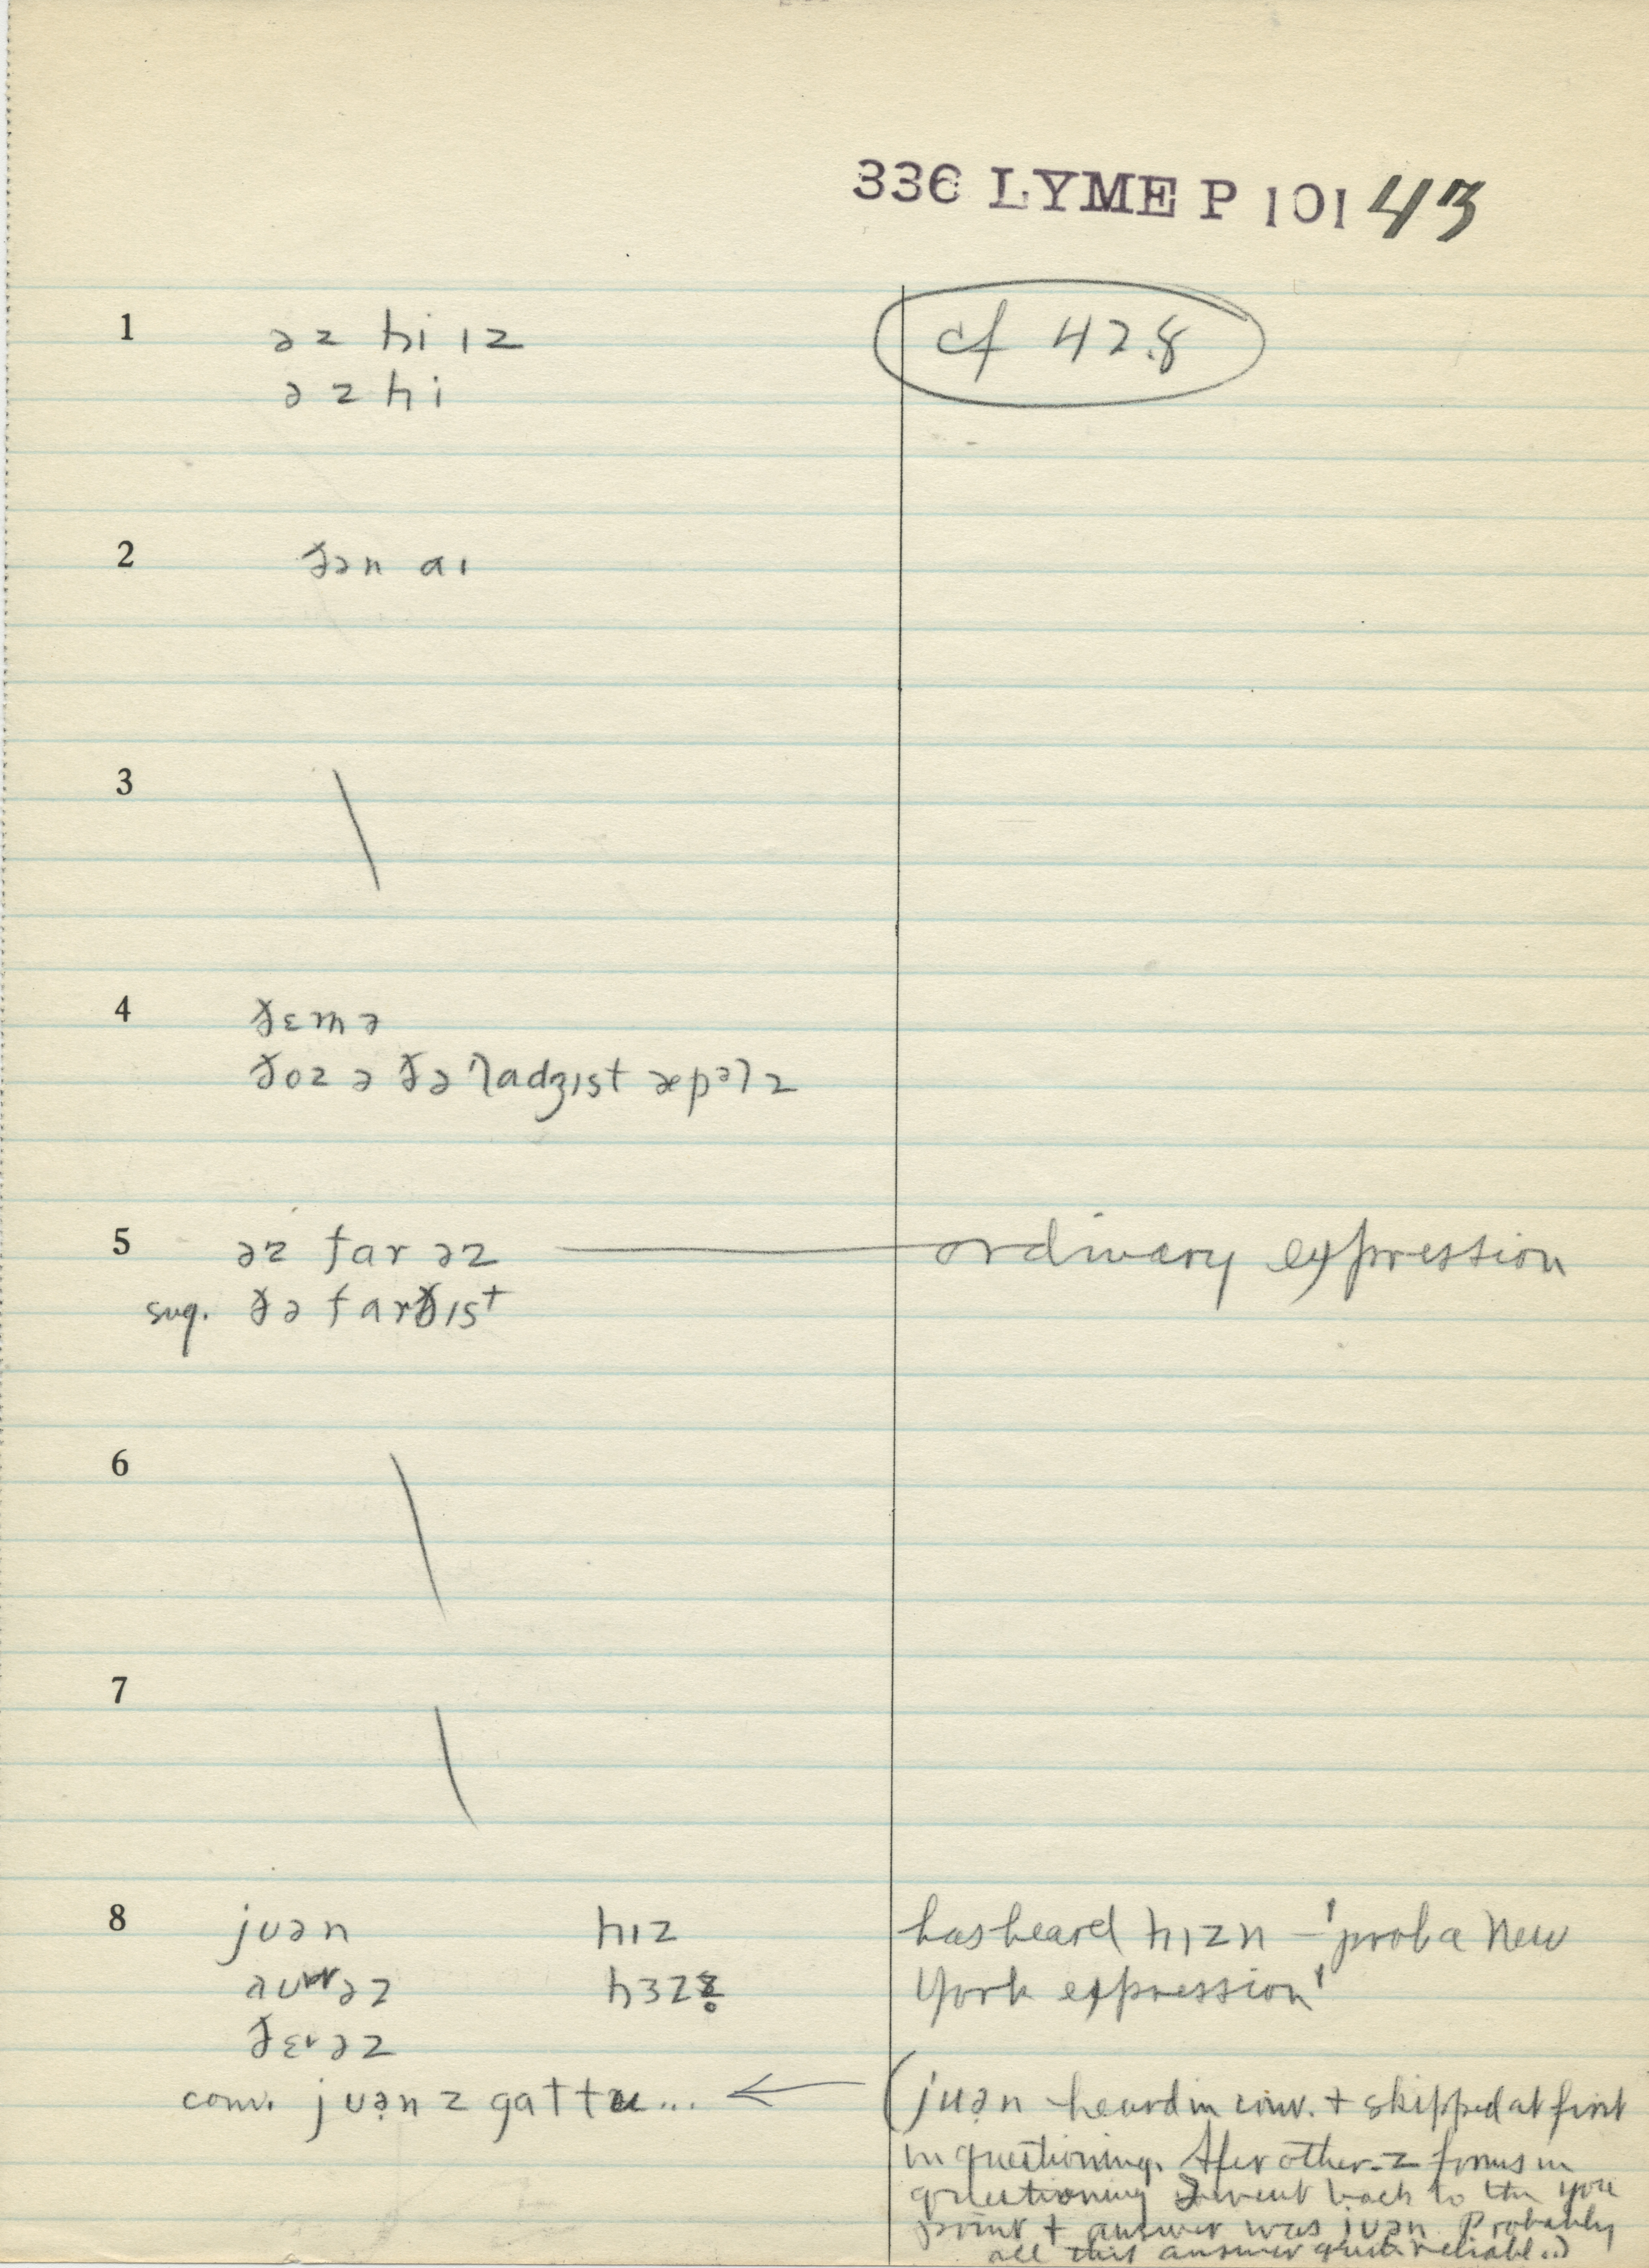 336 LYME P 101 43
1 əz hi ɪz cf 42.8
əz hi
2 ðən aɪ
3
4 ðɛm ə
ðoz ə ðə ladʒɪst æpəlz
5 əz far əz — ordinary expression
sug. ðə farðɪst
6
7
8 juən hɪz has heard hɪzn – 'prob a New
auwəz hɜzz York expression'
ðɛrəz
conv. juənz gattu... ← (juən heard in conv. + skipped at first
in questioning. After other -z forms in
questioning I went back to the you
point + answer was juən. Probably
all this answer quite reliable.)